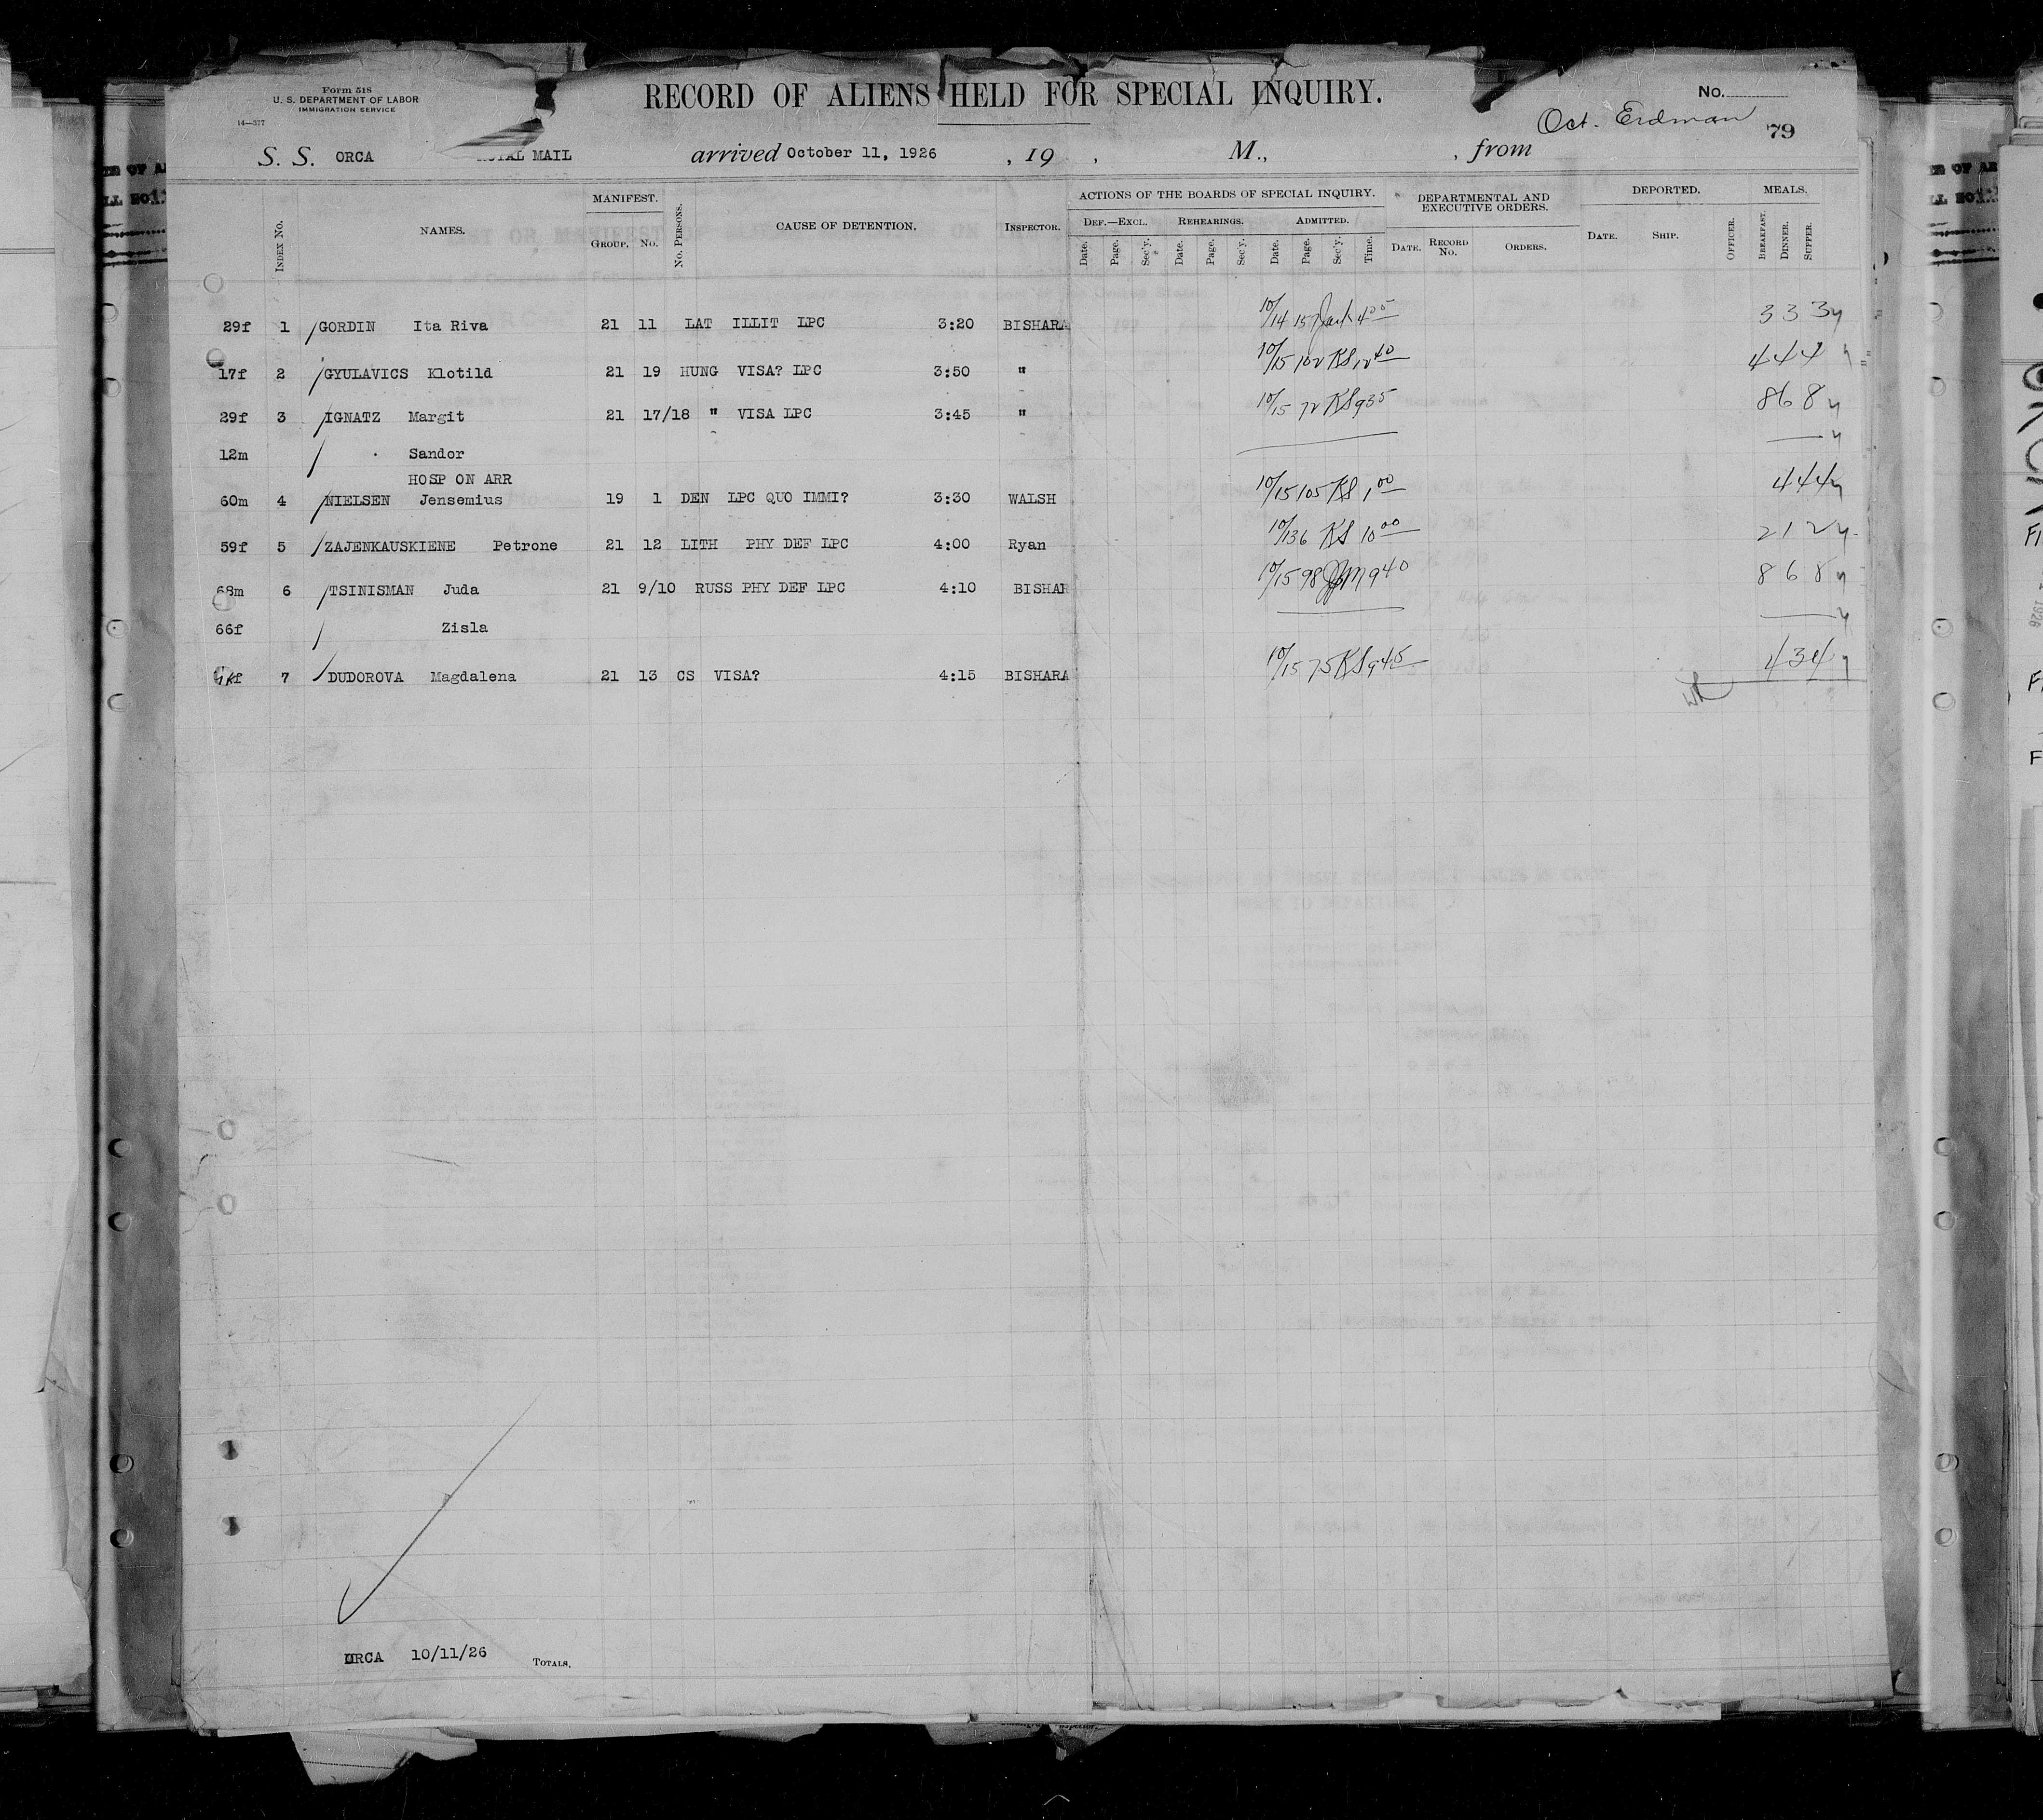 Form 518
U. S. DEPARTMENT OF LABOR
IMMIGRATION SERVICE
14—377
RECORD OF ALIENS HELD FOR SPECIAL INQUIRY.
No.
Oct. Erdman
79
S. S. ORCA MAIL arrived October 11, 1926 , 19 , M., , from
INDEX NO. NAMES. MANIFEST. GROUP. NO. NO. PERSONS. CAUSE OF DETENTION. INSPECTOR. ACTIONS OF THE BOARDS OF SPECIAL INQUIRY. DEF.—EXCL. REHEARINGS. ADMITTED. DEPARTMENTAL AND EXECUTIVE ORDERS. DEPORTED. MEALS.
Date. Page. Sec'y. Date. Page. Sec'y. Date. Page. Sec'y. Time. DATE. RECORD NO. ORDERS. DATE. SHIP. OFFICER. BREAKFAST. DINNER. SUPPER.
29f 1 GORDIN Ita Riva 21 11 LAT ILLIT LPC 3:20 BISHARA 10/14 15 4 05 3 3 3
17f 2 GYULAVICS Klotild 21 19 HUNG VISA? LPC 3:50 " 10/15 102 KS 12 40 4 4 4
29f 3 IGNATZ Margit 21 17/18 " VISA LPC 3:45 " 10/15 72 KS 9 35 8 6 8
12m Sandor
HOSP ON ARR
60m 4 NIELSEN Jensemius 19 1 DEN LPC QUO IMMI? 3:30 WALSH 10/15 105 KS 1 00 4 4 4
59f 5 ZAJENKAUSKIENE Petrone 21 12 LITH PHY DEF LPC 4:00 Ryan 10/13 6 KS 10 00 2 1 2
68m 6 TSINISMAN Juda 21 9/10 RUSS PHY DEF LPC 4:10 BISHAR 10/15 98 9 40 8 6 8
66f Zisla
7 DUDOROVA Magdalena 21 13 CS VISA? 4:15 BISHARA 10/15 75 KS 9 45 4 3 4
ORCA 10/11/26 TOTALS,